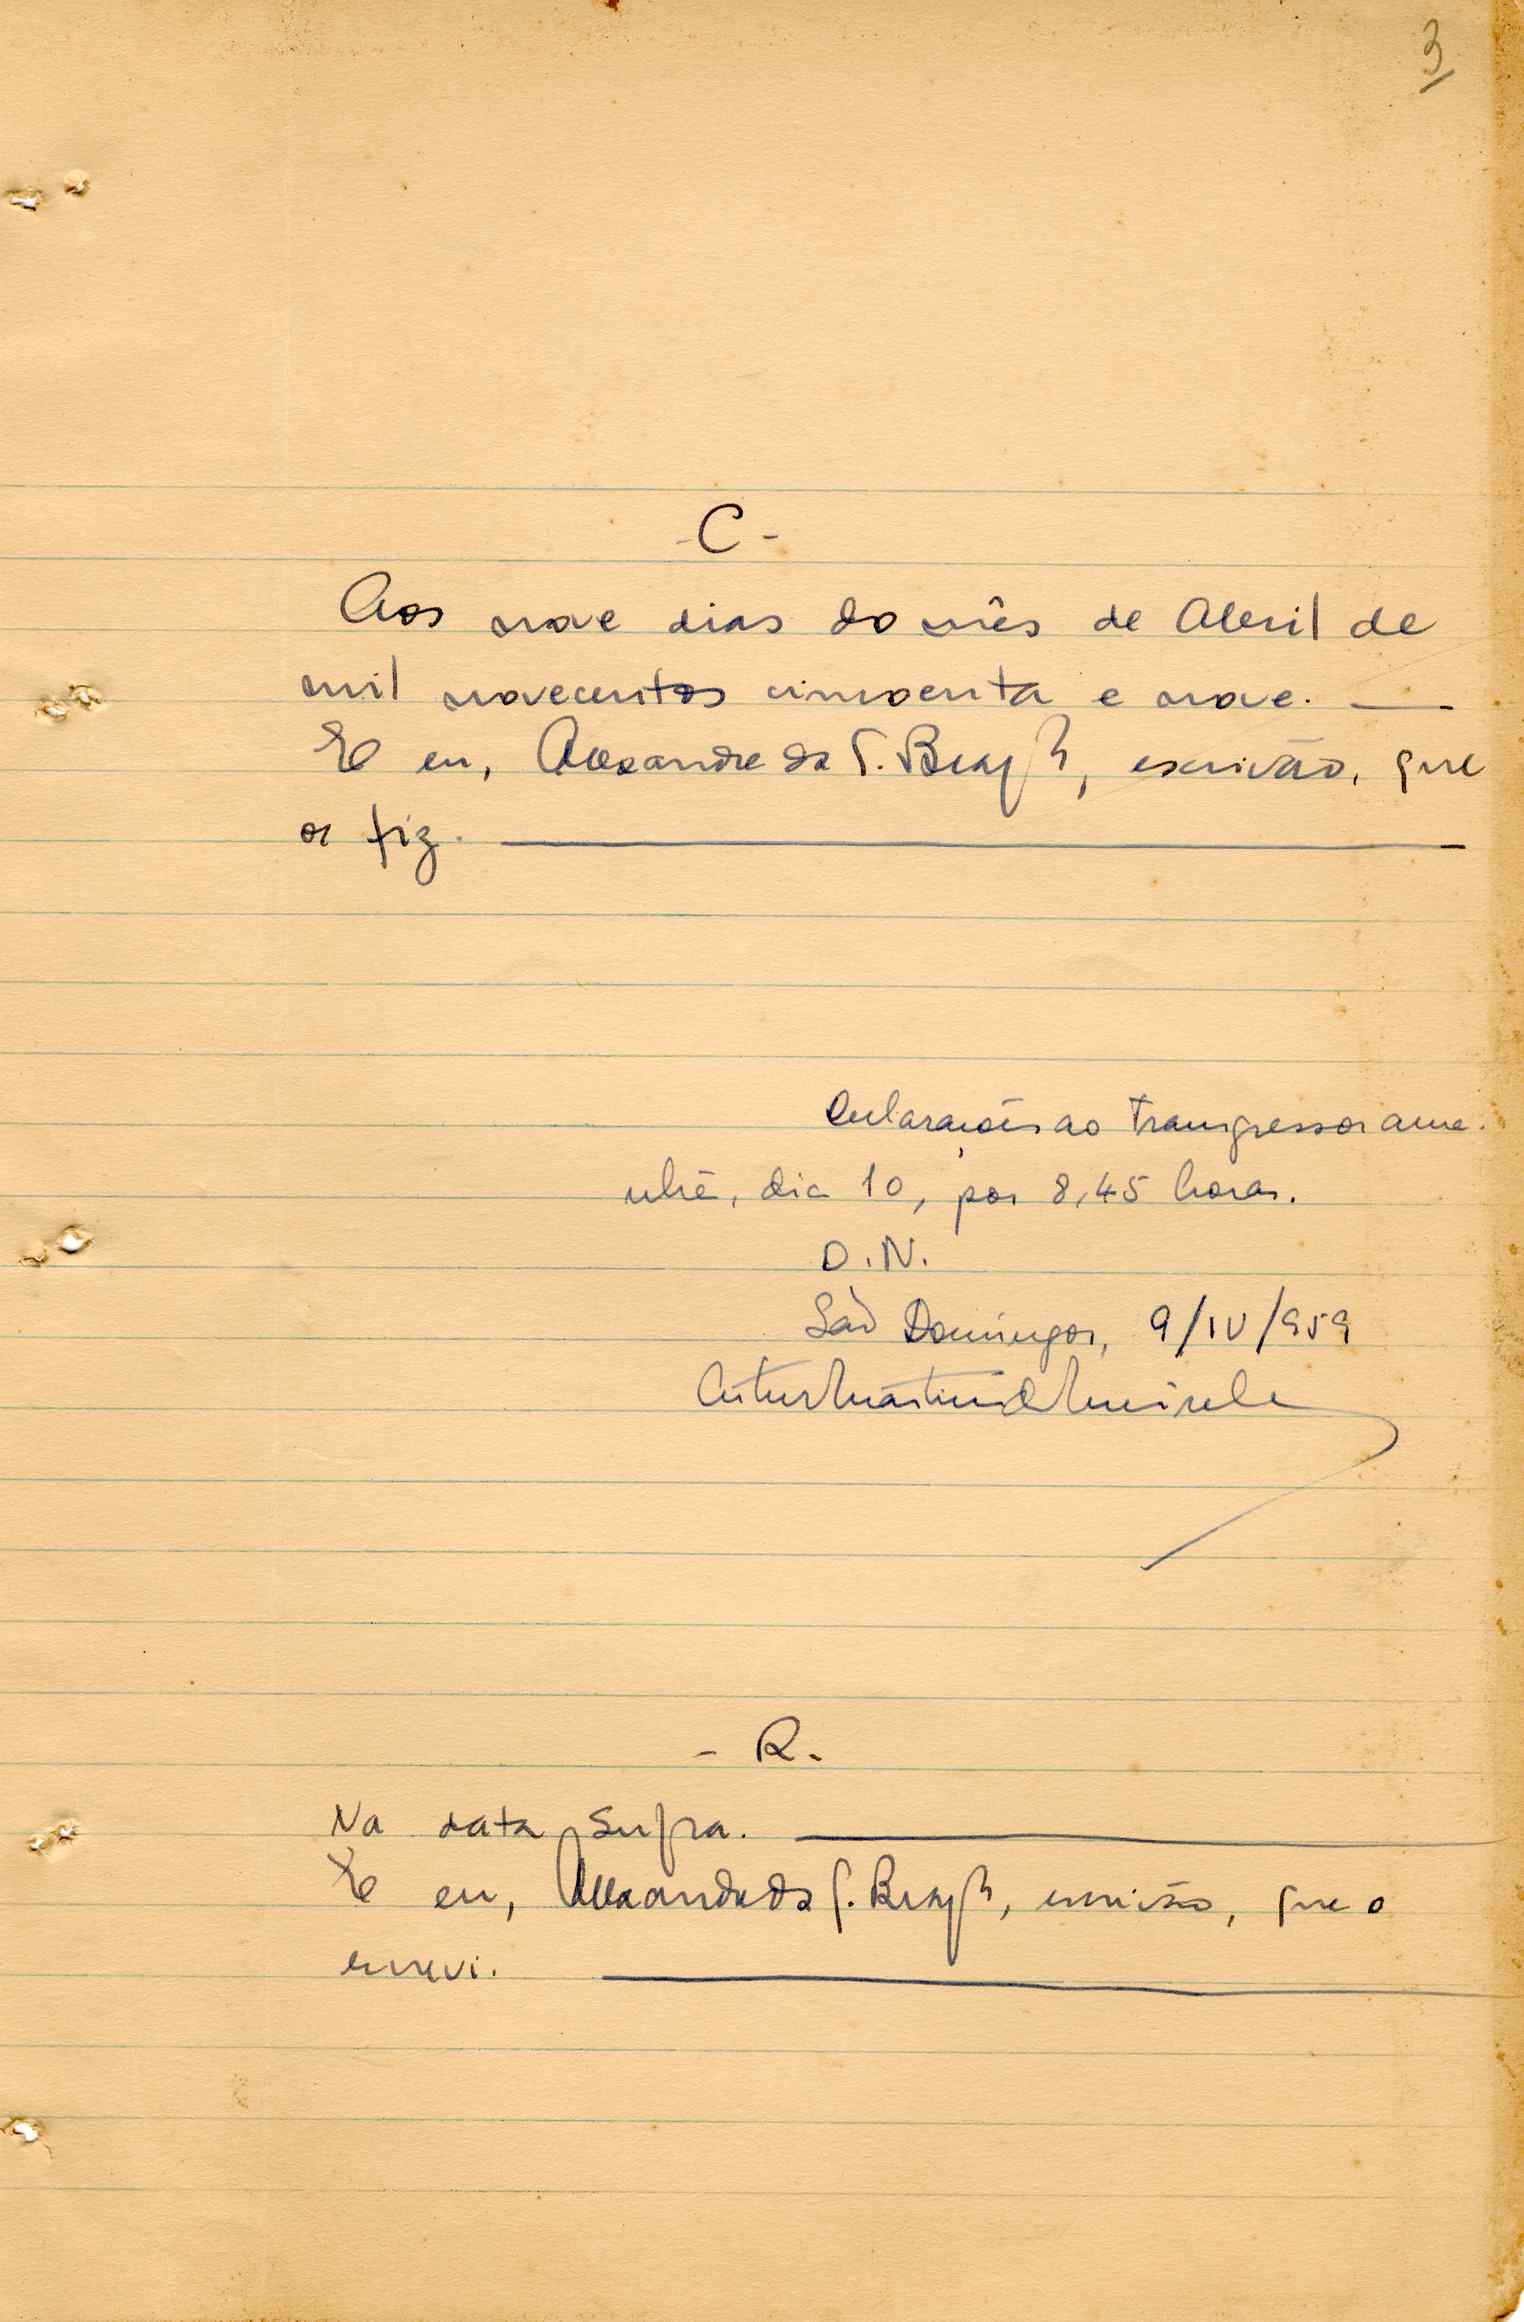 3
- C -
Aos nove dias do mês de Abril de
mil novecentos cincoenta e nove.
E eu, Alexandre da S. Braga, escrivão, que
o fiz.
Declarações ao transgressor ama-
nhã, dia 10, por 8,45 horas.
D.N.
São Domingos, 9/IV/959
Artur Martins de Meireles
- R. -
Na data supra.
E eu, Alexandre da S. Braga, escrivão, que o
escrevi.